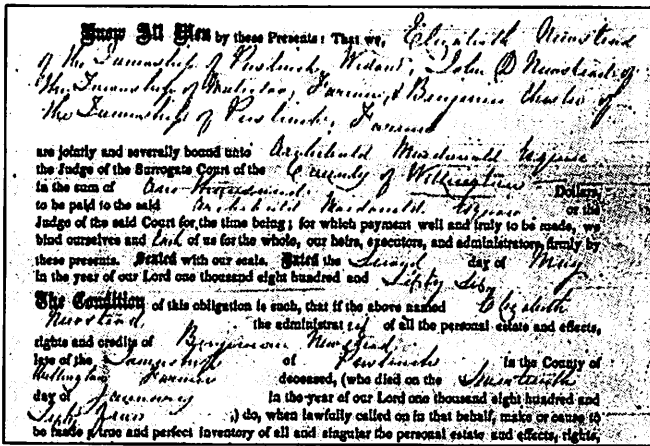 Know All Men by these Presents: That we, Elizabeth Newstead
of the Township of Puslinch Widow, John D Newstead of
the Township of Farmer, & Benjamin of
the Township of Puslinch, Farmer
are jointly and severally bound unto Archibald Macdonald Esquire
the Judge of the Surrogate Court of the County of Wellington
in the sum of One thousand Dollars,
to be paid to the said Archibald Macdonald Esquire or the
Judge of the said Court for the time being; for which payment well and truly to be made, we
bind ourselves and Each of us for the whole, our heirs, executors, and administrators, firmly by
these presents. Sealed with our seals. Dated the Second day of May
in the year of our Lord one thousand eight hundred and
The Condition of this obligation is such, that if the above named Elizabeth
Newstead, the administratrix of all the personal estate and effects,
rights and credits of Benjamin Newstead
late of the Township of Puslinch in the County of
Wellington Farmer deceased, (who died on the Seventeenth
day of January in the year of our Lord one thousand eight hundred and
,) do, when lawfully called on in that behalf, make or cause to
be made a true and perfect inventory of all and singular the personal estate and effects, rights,